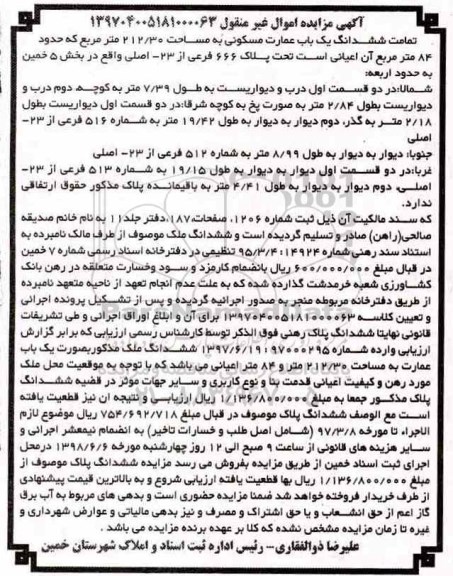 آگهی مزایده اموال غیر منقول ۱۳۹۷۰۴۰۰۵۱۸۱۰۰۰۰۶۳
تمامت ششدانگ یک باب عمارت مسکونی به مساحت ۲۱۲/۳۰ متر مربع که حدود
۸۴ متر مربع آن اعیانی است تحت پلاک ۶۶۶ فرعی از ۲۳- اصلی واقع در بخش ۵ خمین
به حدود اربعه:
شمالا:در دو قسمت اول درب و دیواریست به طول ۷/۳۹ متر به کوچه. دوم درب و
دیواریست بطول ۲/۸۴ متر به صورت پخ به کوچه شرقا:در دو قسمت اول دیواریست بطول
۲/۱۸ متر به گذر، دوم دیوار به دیوار به طول ۱۹/۴۲ متر به شماره ۵۱۶ فرعی از ۲۳-
اصلی
جنوبا: دیوار به دیوار به طول ۸/۹۹ متر به شماره ۵۱۲ فرعی از ۲۳- اصلی
غربا:در دو قسمت اول دیوار به دیوار به طول ۱۹/۱۵ به شماره ۵۱۳ فرعی از ۲۳-
اصلی، دوم دیوار به دیوار به طول ۴/۴۱ متر به باقیمانده پلاک مذکور حقوق ارتفاقی
ندارد.
که سند مالکیت آن ذیل ثبت شماره ۱۲۰۶، صفحات۱۸۷،دفتر جلد۱۱ به نام خانم صدیقه
صالحی(راهن) صادر و تسلیم گردیده است و ششدانگ ملک موصوف از طرف مالک نامبرده به
استناد سند رهنی شماره ۱۴۹۲۴-۹۵/۴/۴ تنظیمی در دفترخانه اسناد رسمی شماره ۷ خمین
در قبال مبلغ ۶۰۰/۰۰۰/۰۰۰ ریال بانضمام کارمزد و سود وخسارت متعلقه در رهن بانک
کشاورزی شعبه خرمدشت گذارده شده که به علت عدم انجام تعهد از ناحیه متعهد نامبرده
از طریق دفترخانه مربوطه منجر به صدور اجرائیه گردیده و پس از تشکیل پرونده اجرائی
و تعیین کلاسه ۱۳۹۷۰۴۰۰۵۱۸۱۰۰۰۰۶۳ برای آن و ابلاغ اوراق اجرائی و طی تشریفات
قانونی نهایتا ششدانگ پلاک رهنی فوق الذکر توسط کارشناس رسمی ارزیابی که برابر گزارش
ارزیابی وارده شماره ۹۷۰۰۰۲۹۵-۱۳۹۷/۶/۱۹ ششدانگ ملک مذکوربصورت یک باب
عمارت به مساحت ۲۱۲/۳۰ متر و ۸۴ متر اعیانی می باشد که با توجه به موقعیت محل ملک
مورد رهن و کیفیت اعیانی قدمت بنا و نوع کاربری و سایر جهات موثر در قضیه ششدانگ
پلاک مذکور جمعا به مبلغ ۱/۱۳۶/۸۰۰/۰۰۰ ریال ارزیابی و نتیجه ان نیز قطعیت یافته
است مع الوصف ششدانگ پلاک موصوف در قبال مبلغ ۷۵۴/۶۹۲/۷۱۸ ریال موضوع لازم
الاجراء تا مورخه ۹۷/۳/۸ (شامل اصل طلب و خسارات تاخیر) به انضمام نیمعشر اجرائی و
سایر هزینه های قانونی از ساعت ۹ صبح الی ۱۲ روز چهارشنبه مورخه ۱۳۹۸/۶/۶ درمحل
اجرای ثبت اسناد خمین از طریق مزایده بفروش می رسد مزایده ششدانگ پلاک موصوف از
مبلغ ۱/۱۳۶/۸۰۰/۰۰۰ ریال بها قطعیت یافته ارزیابی شروع و به بالاترین قیمت پیشنهادی
از طرف خریدار فروخته خواهد شد ضمنا مزایده حضوری است و بدهی های مربوط به آب برق
گاز اعم از حق انشعاب و یا حق اشتراک و مصرف و نیز بدهی مالیاتی و عوارض شهرداری و
غیره تا زمان مزایده مشخص نشده که کلا بر عهده برنده مزایده می باشد .
علیرضا ذوالفقاری- رئیس اداره ثبت اسناد و املاک شهرستان خمین